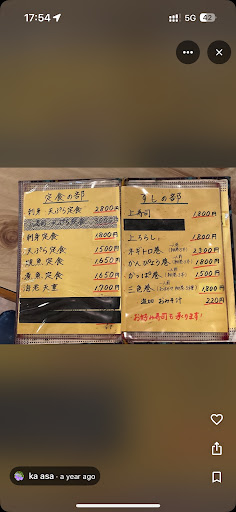 17:54
5G 42
定食の部
刺身 天ぷら定食 2800円
刺身定食 1800円
天ぷら定食 1500円
焼魚定食 1650円
煮魚定食 1650円
海老天重 1700円
すしの部
上寿司 1800円
上ちらし 1800円
ネギトロ巻 2300円
かんぴょう巻 1800円
かっぱ巻 1500円
三色巻 1800円
追加 おみそ汁 220円
お好み寿司も承ります!
ka asa · a year ago